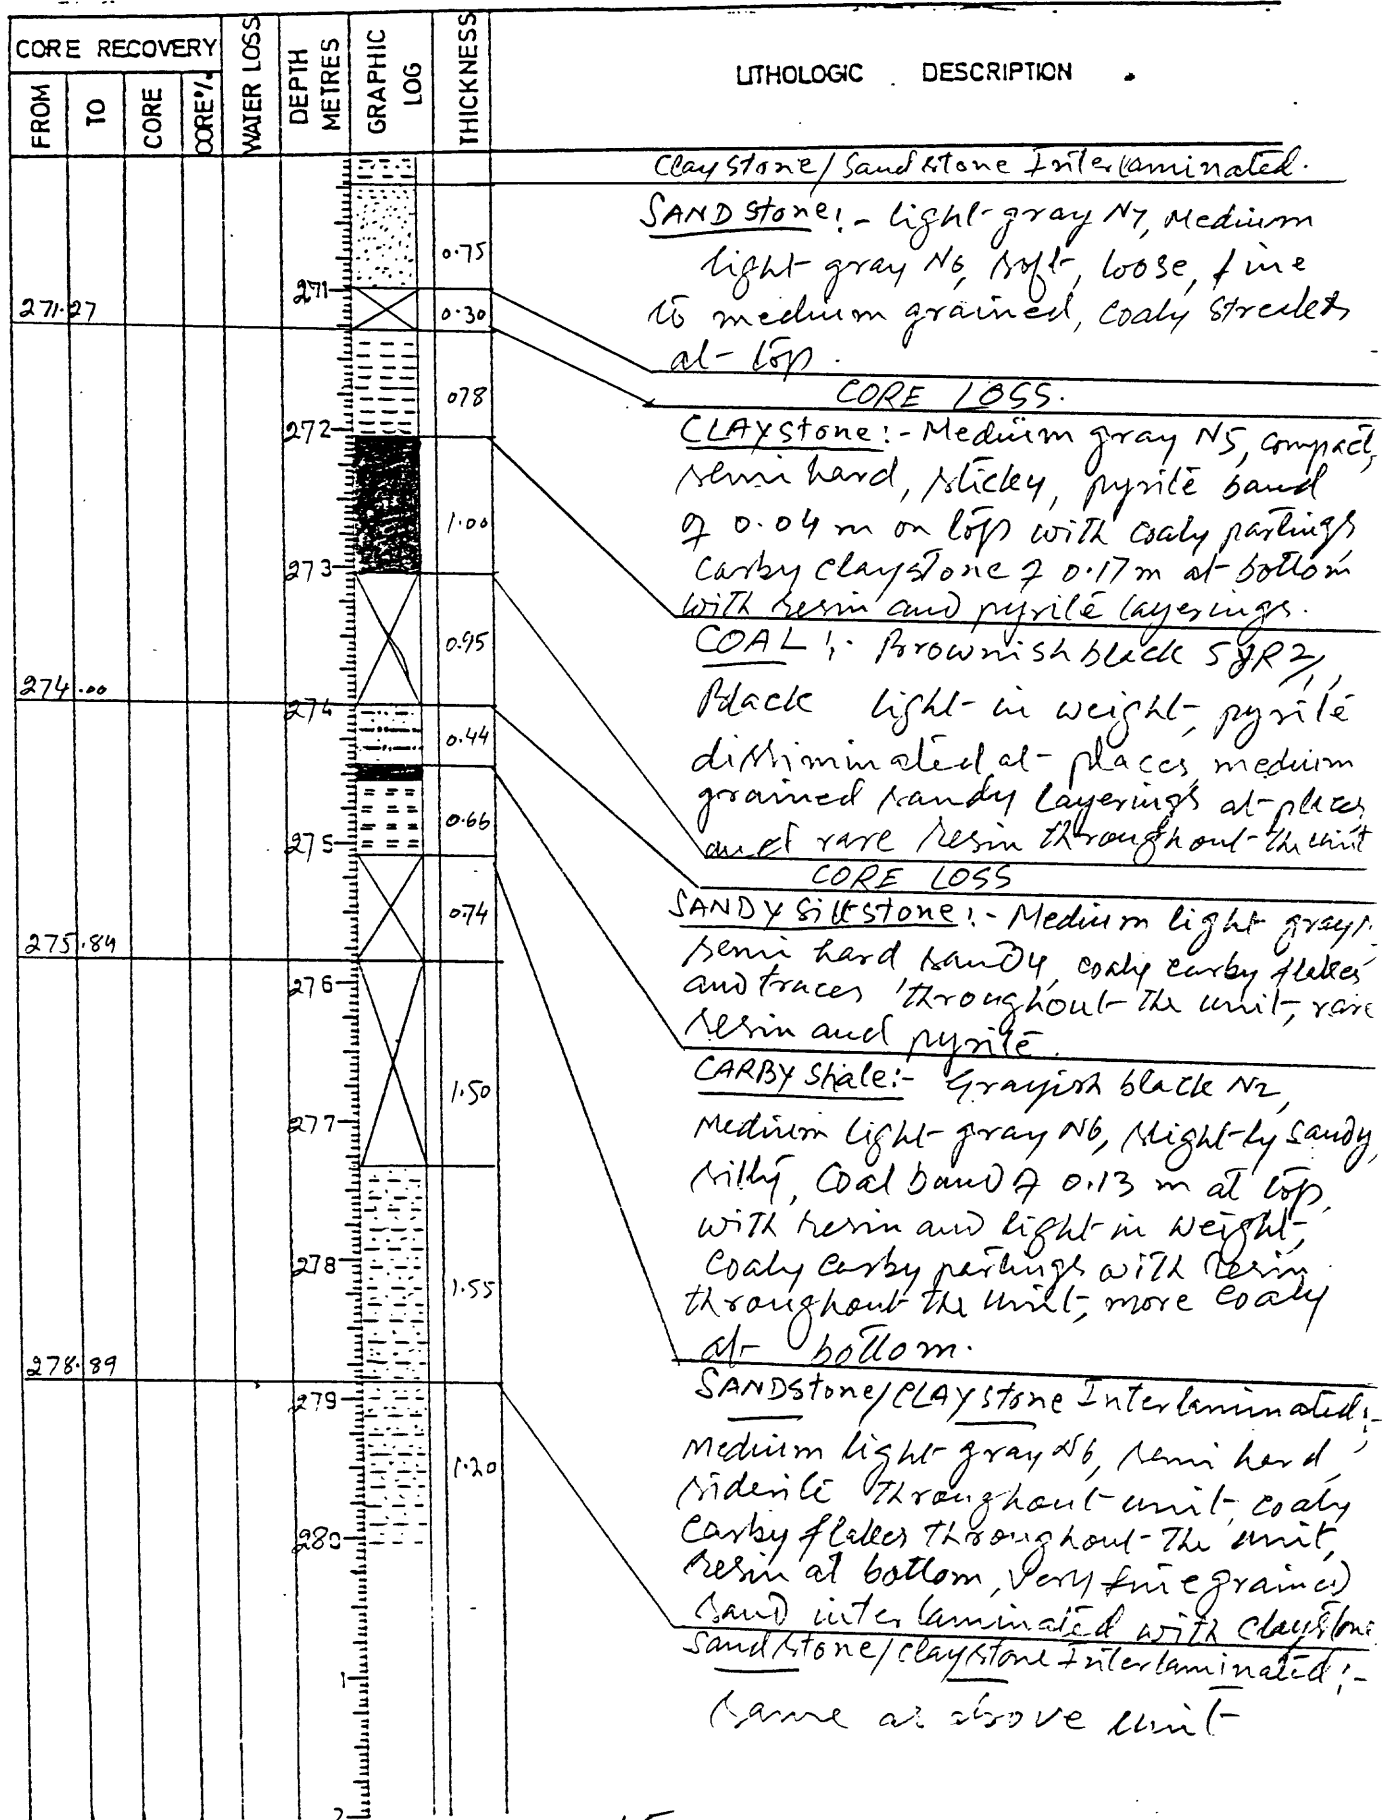 CORE RECOVERY
FROM
TO
CORE
CORE%
WATER LOSS
DEPTH METRES
GRAPHIC LOG
THICKNESS
LITHOLOGIC DESCRIPTION
Claystone/Sandstone Interlaminated.
SANDstone:- light gray N7, Medium
light gray N6, soft, loose, fine
to medium grained, coaly streaks
at top.
0.75
271
271.27
0.30
CORE LOSS.
078
272
CLAYstone:- Medium gray N5, compact,
semi hard, sticky, pyrite band
of 0.04 m on top with coaly partings
Carby claystone of 0.17m at bottom
with resin and pyrite layerings.
1.00
273
COAL:- Brownish black 5YR 2/1,
Black light in weight, pyrite
dissiminated at places, medium
grained sandy layerings at places
and rare resin throughout the unit
0.95
274.00
274
CORE LOSS
0.44
SANDY Siltstone:- Medium light gray
semi hard sandy, coaly carby flakes
and traces throughout the unit, rare
resin and pyrite.
0.66
275
CARBY Shale:- Grayish black N2,
Medium light gray N6, slightly sandy,
silty, Coal band of 0.13 m at top,
with resin and light in weight,
Coaly carby partings with resin
throughout the unit, more coaly
at bottom.
0.74
275.84
276
1.50
277
278
1.55
278.89
SANDstone/CLAYstone Interlaminated:-
Medium light gray N6, semi hard,
siderite throughout unit, coaly
carby flakes throughout the unit,
resin at bottom, very fine grained
sand interlaminated with claystone
279
1.20
280
Sandstone/Claystone Interlaminated:-
same as above unit
1
2